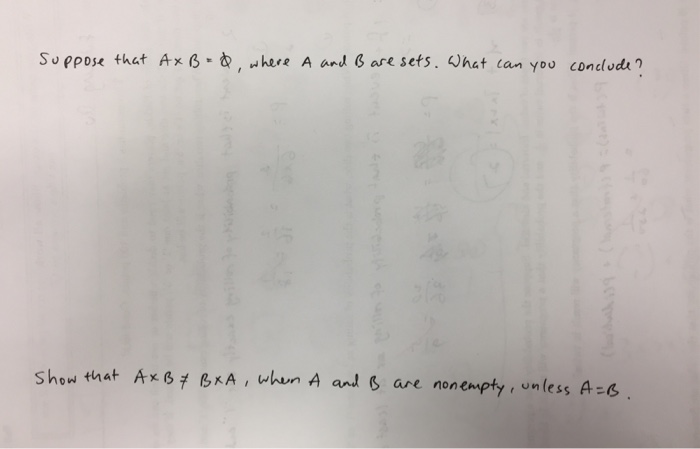 Suppose that A × B = ∅, where A and B are sets. What can you conclude?
Show that A × B ≠ B × A, when A and B are nonempty, unless A = B.